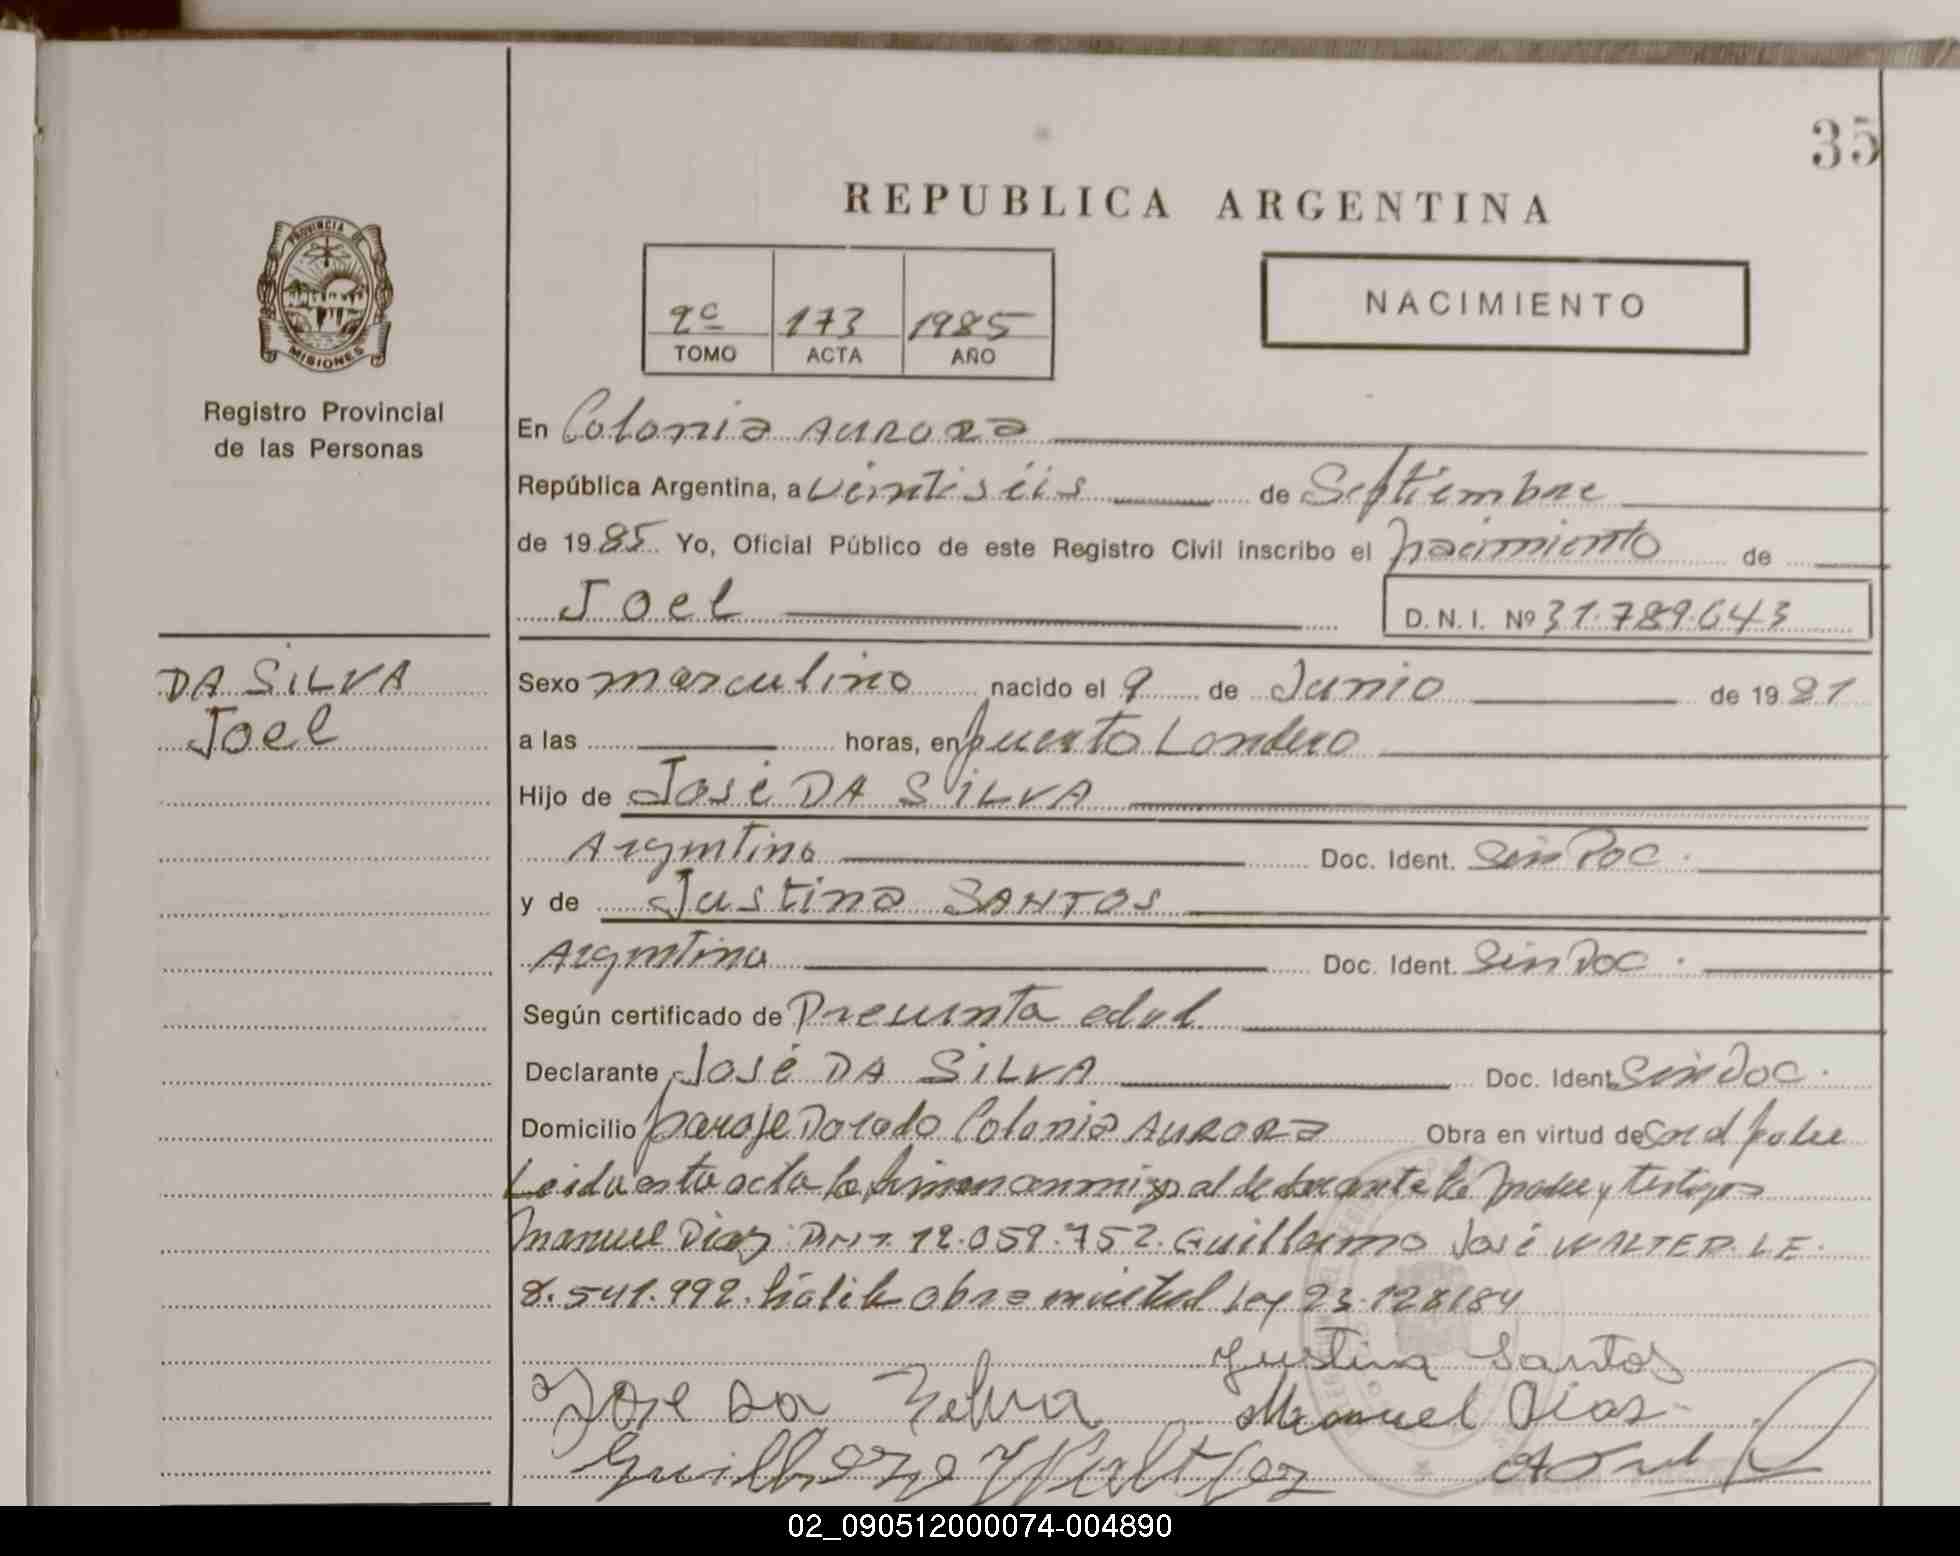 35
REPUBLICA ARGENTINA
PROVINCIA DE
MISIONES
Registro Provincial
de las Personas
2º 173 1985
TOMO ACTA AÑO
NACIMIENTO
En Colonia AURORA
República Argentina, a veintiséis de Septiembre
de 1985 Yo, Oficial Público de este Registro Civil inscribo el nacimiento de
Joel D.N.I. Nº 31.789.643
DA SILVA
Joel
Sexo masculino nacido el 9 de Junio de 1981
a las horas, en puerto Londero
Hijo de José DA SILVA
Argentino Doc. Ident. Sin Doc.
y de Justina SANTOS
Argentina Doc. Ident. Sin Doc.
Según certificado de Presunta edad
Declarante José DA SILVA Doc. Ident. Sin Doc.
Domicilio paraje Dorado Colonia AURORA Obra en virtud de
Leida esta acta la firman conmigo el declarante la madre y testigos
Manuel Diaz DNI. 12.059.752. Guillermo José WALTER L.E.
8.541.992. Obra Ley 23.128/84
Justina Santos
Jose da Manuel Dias
02_090512000074-004890